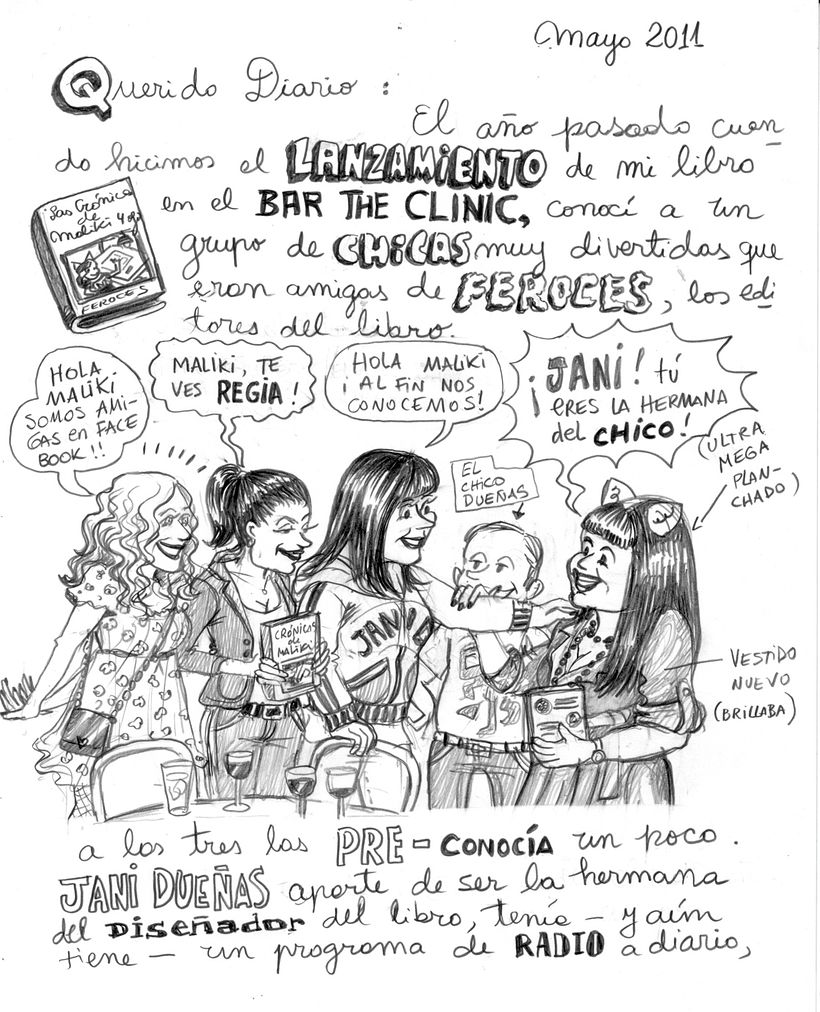 Mayo 2011
Querido Diario :
El año pasado cuan
do hicimos el LANZAMIENTO de mi libro
en el BAR THE CLINIC, conocí a un
grupo de CHICAS muy divertidas que
eran amigas de FEROCES, los edi
tores del libro.
Las Crónicas
de
Maliki 4 ojos
FEROCES
HOLA
MALIKI
SOMOS AMI-
GAS en FACE
BOOK !!
MALIKI, TE
VES REGIA !
HOLA MALIKI
¡ AL FIN NOS
CONOCEMOS!
¡JANI! tú
ERES LA HERMANA
del CHICO!
(ULTRA
MEGA
PLAN-
CHADO)
EL
CHICO
DUEÑAS
CRÓNICAS
de
MALIKI
VESTIDO
NUEVO
(BRILLABA)
a las tres las PRE-CONOCÍA un poco.
JANI DUEÑAS aparte de ser la hermana
del DISEÑADOR del libro, tenía - y aún
tiene - un programa de RADIO a diario,